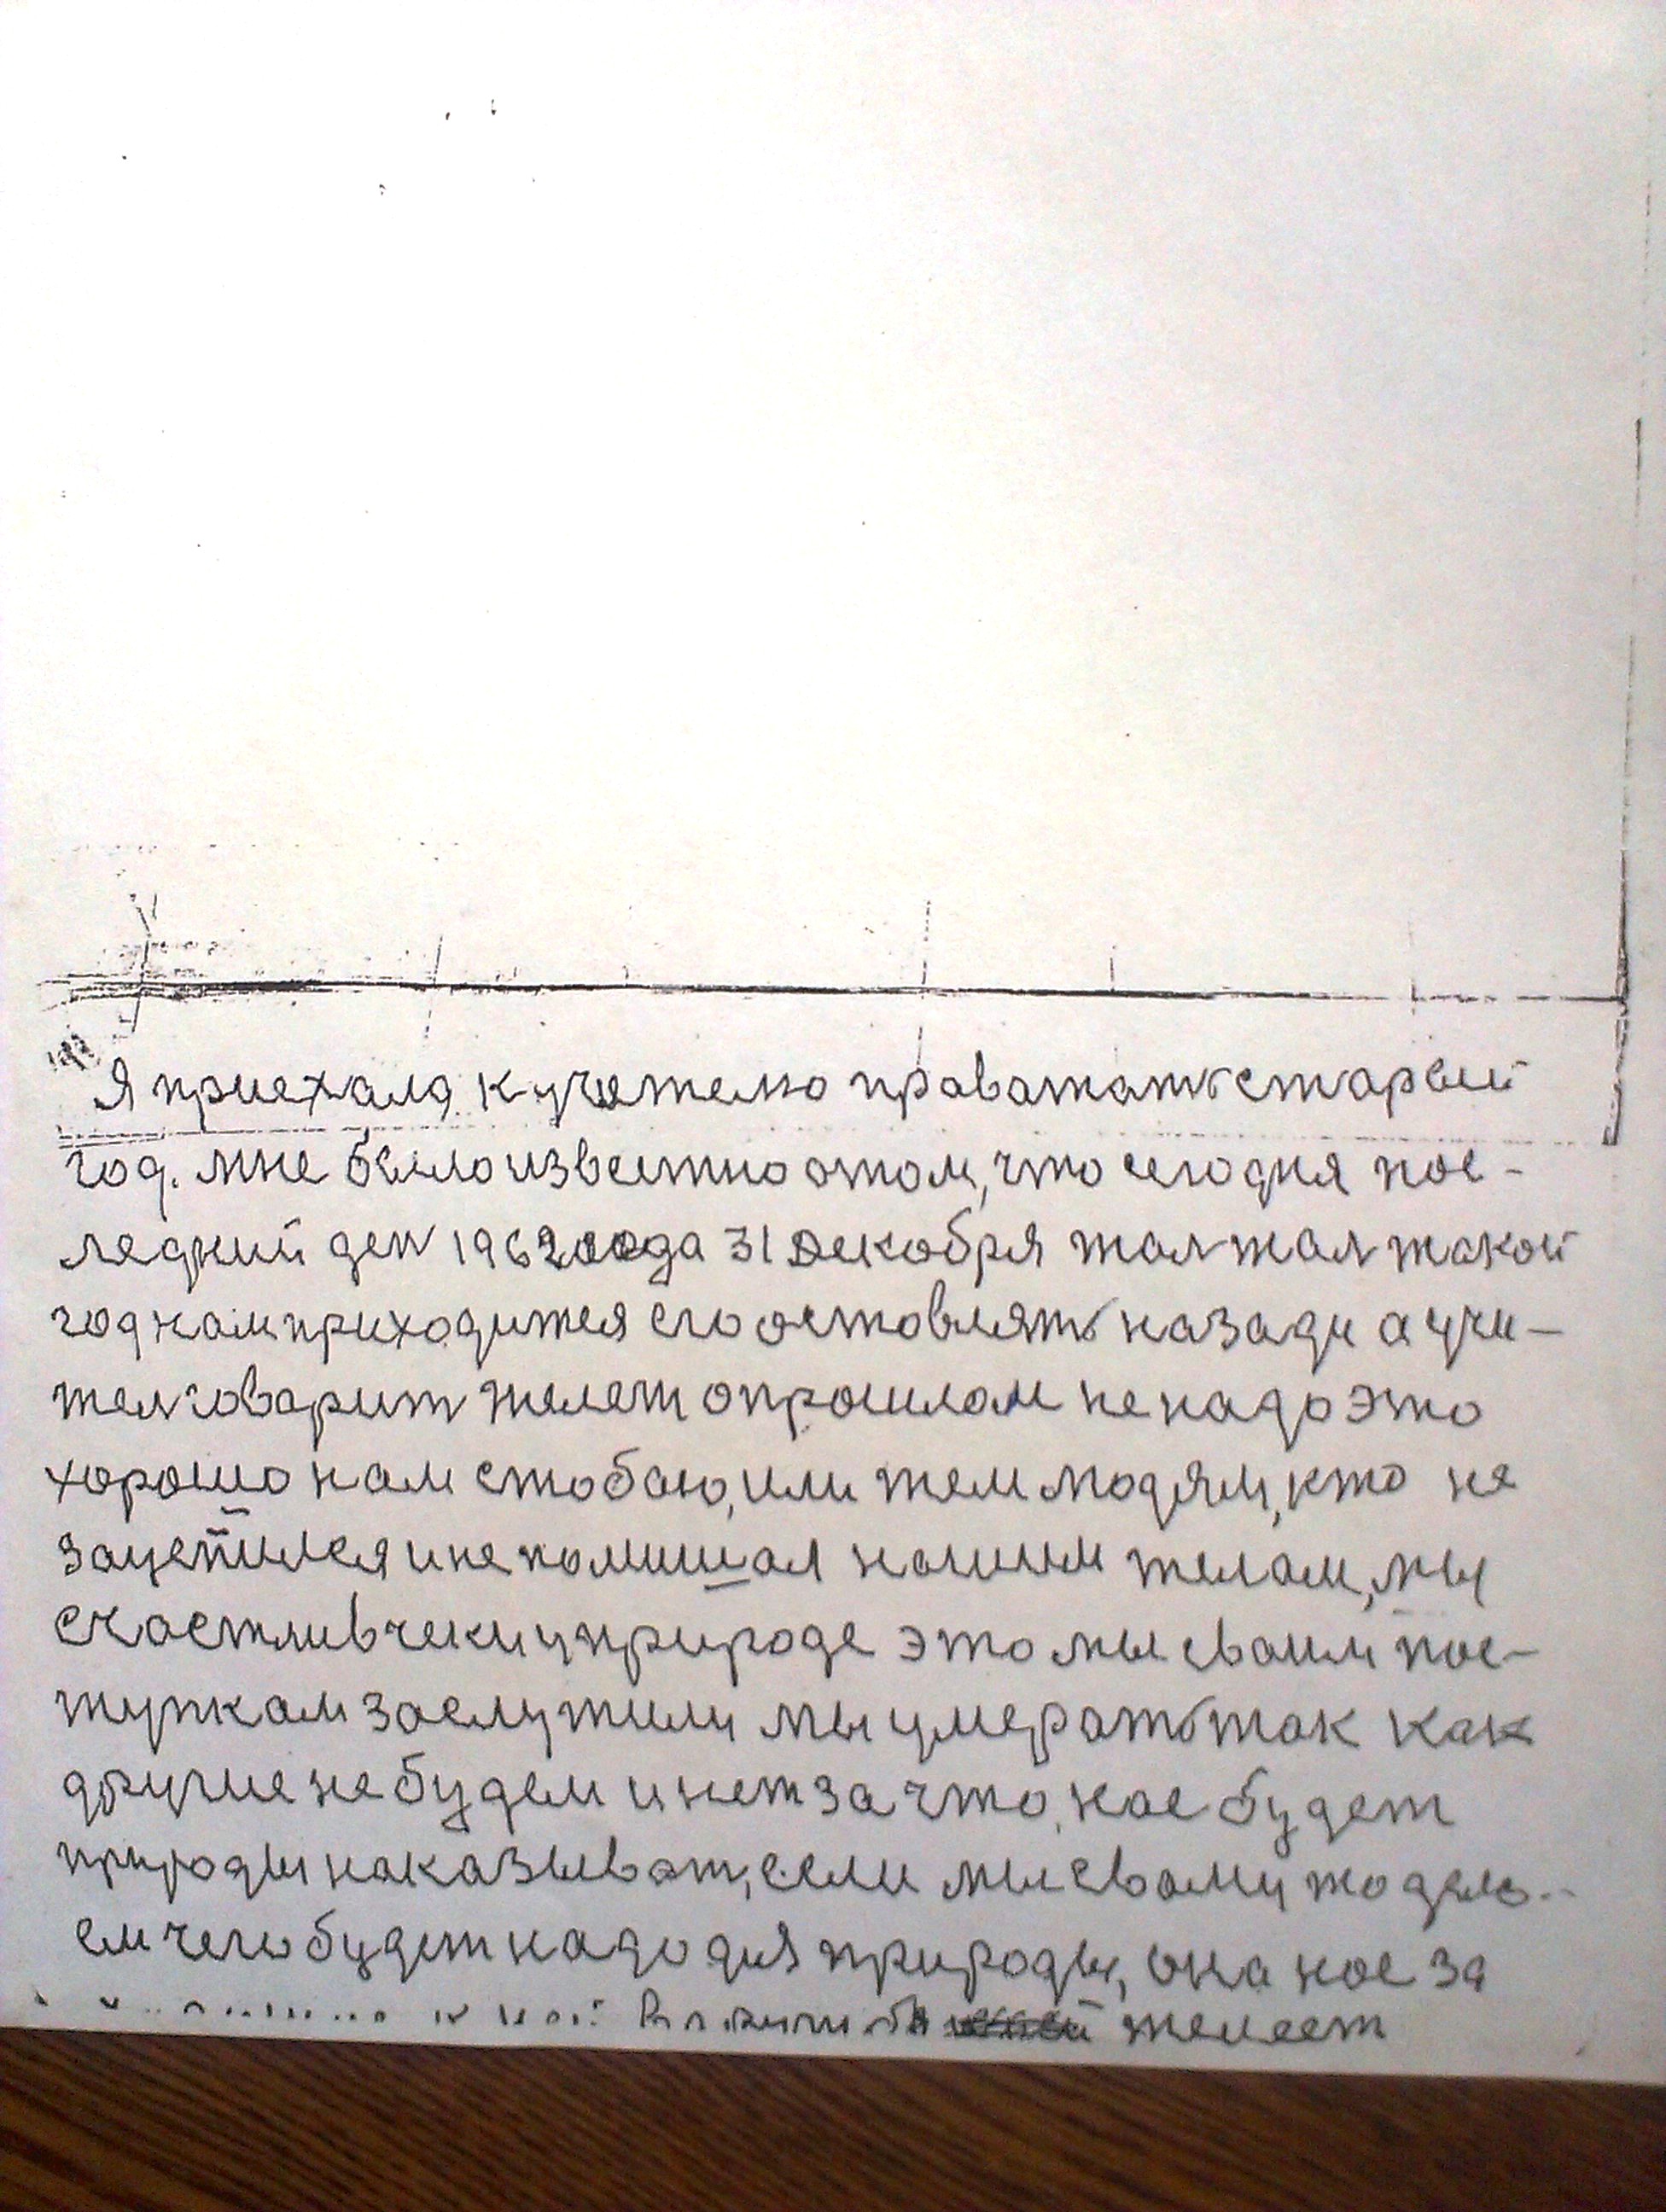 Я приехала к учетелю праважать старый
год. мне было известно отом, что сегодня пос-
ледний ден 1962 года 31 Декобря жал жал такой
год нам приходится его остовлять назади а учи-
тел говарит желет о прошлом не надо это
хорошо нам стобаю, или тем людям, кто не
зацепился и не помишал нашим телам, мы
счастливчеки у природе это мы сваим пос-
тупкам заслужили мы умерать так как
другие не будем и нет за что, нас будет
природы наказыват, если мы сваму то дело-
ем чего будет надо для природы, она нас за
желеет